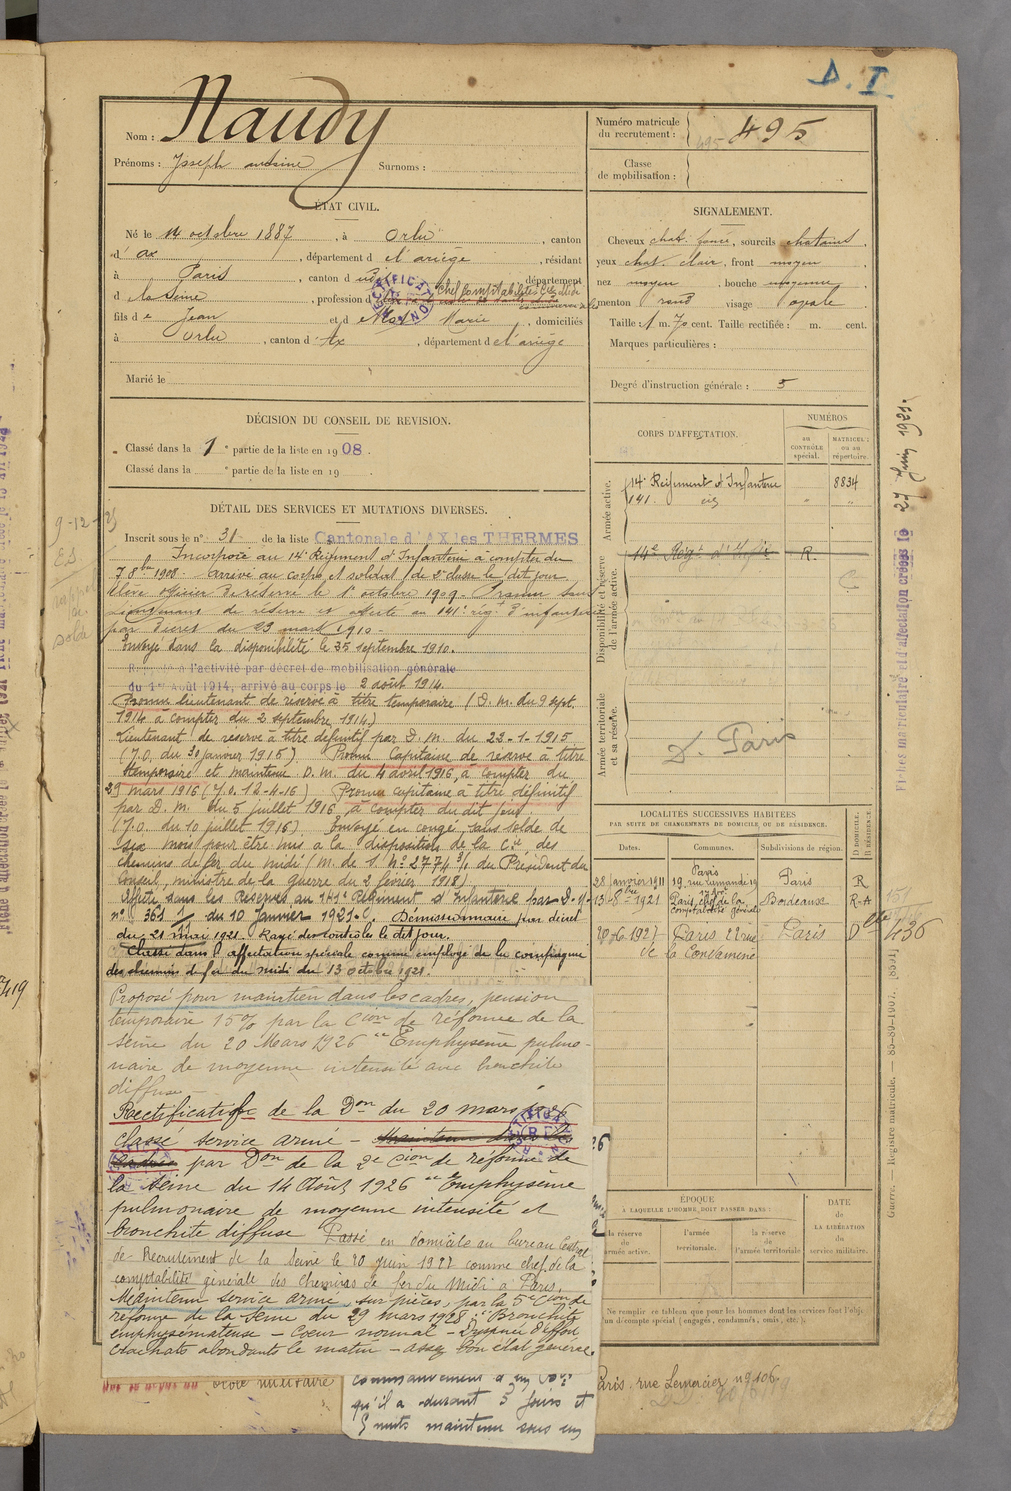 D. I
Nom : Naudy
Prénoms : Joseph antoine Surnoms :
Numéro matricule du recrutement : 495
Classe de mobilisation :
ÉTAT CIVIL.
Né le 14 octobre 1887, à Orlu, canton
d' ax, département d e l'ariège, résidant
à Paris, canton d , département
d e la Seine, profession d chef comptabilité
fils d e Jean et d e Marie, domiciliés
à Orlu, canton d' Ax, département d e l'ariège
Marié le
SIGNALEMENT.
Cheveux chat. foncé, sourcils chatains,
yeux chat. clair, front moyen
nez moyen, bouche moyenne
menton rond visage ovale
Taille : 1 m. 70 cent. Taille rectifiée : m. cent.
Marques particulières :
Degré d'instruction générale : 5
DÉCISION DU CONSEIL DE REVISION.
Classé dans la 1e partie de la liste en 1908.
Classé dans la e partie de la liste en 19
DÉTAIL DES SERVICES ET MUTATIONS DIVERSES.
Inscrit sous le n° 31 de la liste Cantonale d'AX les THERMES
Incorporé au 14e Régiment d'Infanterie à compter du
7 8bre 1908. Arrivé au corps et soldat de 2e classe le dit jour
Elève officier de réserve le 1er octobre 1909. Promu sous
Lieutenant de réserve et affecté au 141e régt d'infanterie
par Décret du 23 mars 1910.
Envoyé dans la disponibilité le 25 septembre 1910.
Rappelé à l'activité par décret de mobilisation générale
du 1er Août 1914, arrivé au corps le 2 août 1914.
Promu lieutenant de réserve à titre temporaire (D. m. du 9 sept.
1914 à compter du 2 septembre 1914.)
Lieutenant de réserve à titre définitif par D. M. du 22-1-1915
(J.O. du 30 janvier 1915) Promu Capitaine de réserve à titre
temporaire et maintenu D. m. du 4 avril 1916, à compter du
29 mars 1916 (J.O. 12-4-16) Promu capitaine à titre définitif
par D. m. du 5 juillet 1916, à compter du dit jour
(J.O. du 10 juillet 1916). Envoyé en congé sans solde de
six mois pour être mis à la disposition de la Cie des
Chemins de fer du midi (M. de l. n° 2774 3/1 du Président du
Conseil, ministre de la guerre du 2 février 1918)
Affecté dans les Réserves au 141e Régiment d'Infanterie par D. M.
n° 361 1/ du 10 Janvier 1921. Démissionnaire par décret
du 21 mai 1921. Rayé des contrôles le dit jour.
Classé dans l'affectation spéciale comme employé de la compagnie
des chemins de fer du midi du 13 octobre 1921.
Proposé pour maintien dans les cadres, pension
temporaire 15% par la Cion de réforme de la
Seine du 20 Mars 1926 "Emphysème pulmo-
naire de moyenne intensité avec bronchite
diffuse -
Rectificatif de la Don du 20 mars 1926
Classé service armé - Maintenu dans les
Cadres par Don de la 2e Cion de réforme de
la Seine du 14 Août 1926 "Emphysème
pulmonaire de moyenne intensité et
bronchite diffuse Passé en domicile au bureau Central
de Recrutement de la Seine le 20 juin 1927 comme chef de la
comptabilité générale des Chemins de fer du Midi à Paris.
Maintenu service armé, sur pièces, par la 5e Cion de
réforme de la Seine du 29 mars 1928 : "Bronchite
emphysémateuse - Cœur normal - Dyspnée d'effort
crachats abondants le matin - assez bon état général.
école militaire
commandement d'un
qu'il a durant 5 jours et
5 nuits maintenu sous un
CORPS D'AFFECTATION.
NUMÉROS
au CONTRÔLE spécial.
MATRICULE ou au répertoire.
Armée active.
14e Régiment d'Infanterie 8834
141e. do "
Disponibilité et réserve de l'armée active.
14e Régt d'Infie R.
Armée territoriale et sa réserve.
D. Paris
LOCALITÉS SUCCESSIVES HABITÉES
PAR SUITE DE CHANGEMENTS DE DOMICILE OU DE RÉSIDENCE.
Dates. Communes. Subdivisions de région. D DOMICILE. R RÉSIDENCE.
28 janvier 1911 Paris 19, rue Lemande Paris R
1921 Paris, chef de la comptabilité générale Bordeaux R-A
20-6-1927 Paris 2 rue de la Condamine Paris De
436
ÉPOQUE
À LAQUELLE L'HOMME DOIT PASSER DANS :
la réserve de l'armée active.
l'armée territoriale.
la réserve de l'armée territoriale
DATE de LA LIBÉRATION du service militaire.
Ne remplir ce tableau que pour les hommes dont les services font l'objet
d'un décompte spécial (engagés, condamnés, omis, etc.).
Paris. rue Lemercier n° 106.
Fiches matriculaire et d'affectation créées le 27 Juin 1927.
Guerre. — Registre matricule. — 85-80-1907. [8571]
9-12-
ES
rappel
de
solde
419